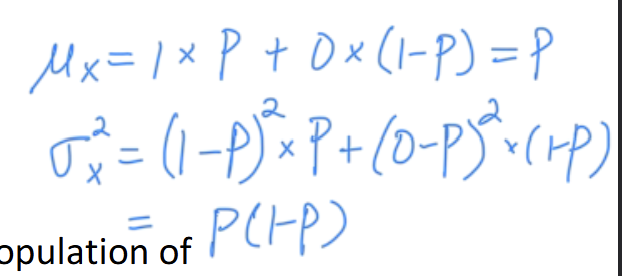 μx = 1 × P + 0 × (1-P) = P
σx² = (1-P)² × P + (0-P)² × (1-P)
= P(1-P)
opulation of